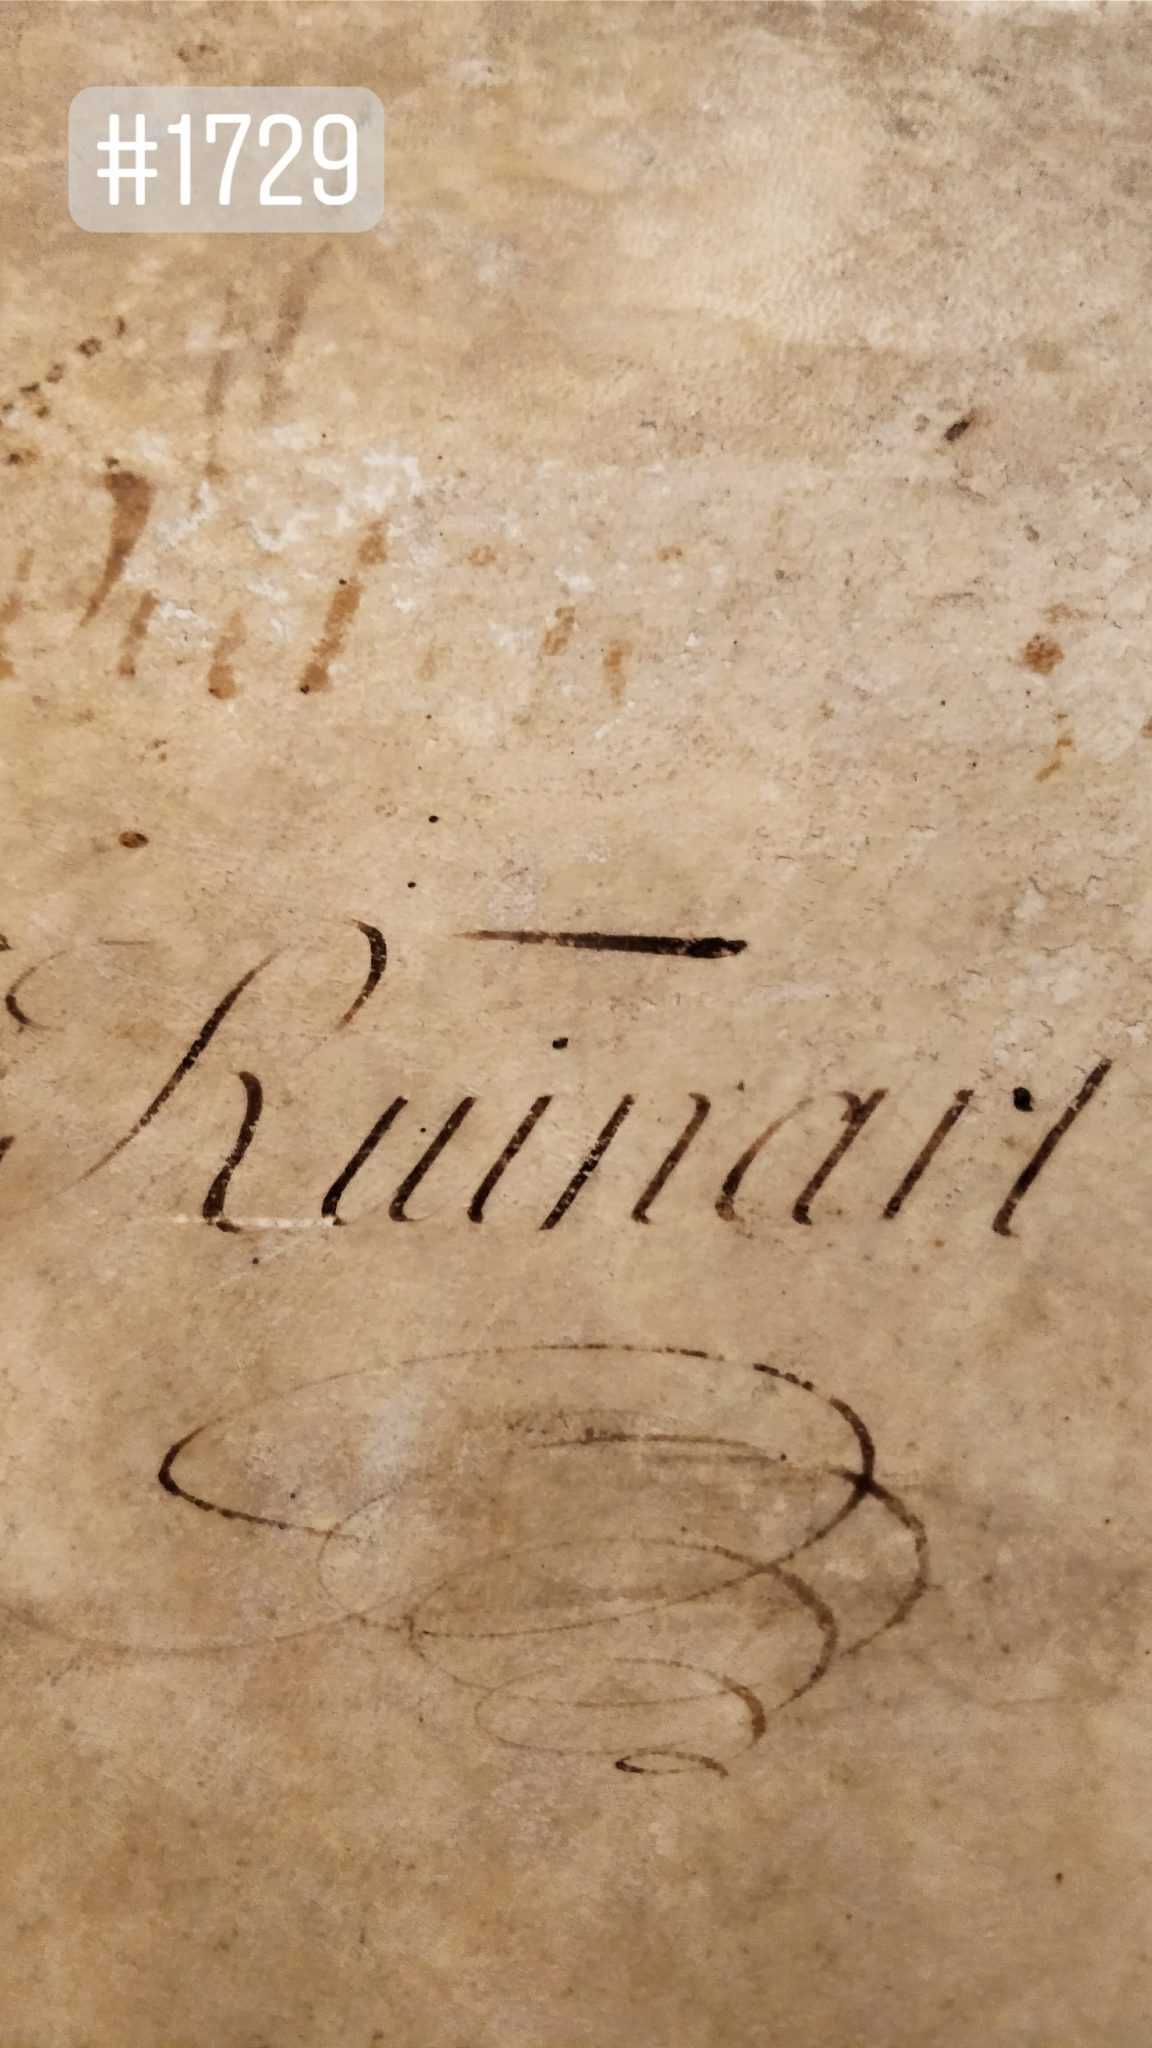 #1729
Ruinart